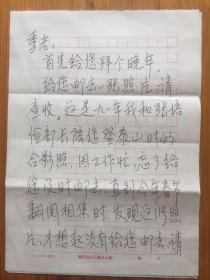 季老:
首先给您拜个晚年.
给您邮去一张照片,请
查收。这是九一年我和张培
俭部长陪您登泰山时的
合影照,因工作忙,忘了给
您及时邮去,直到今年春节
翻阅相集时,发现这张照
片,才想起没有给您邮去,请